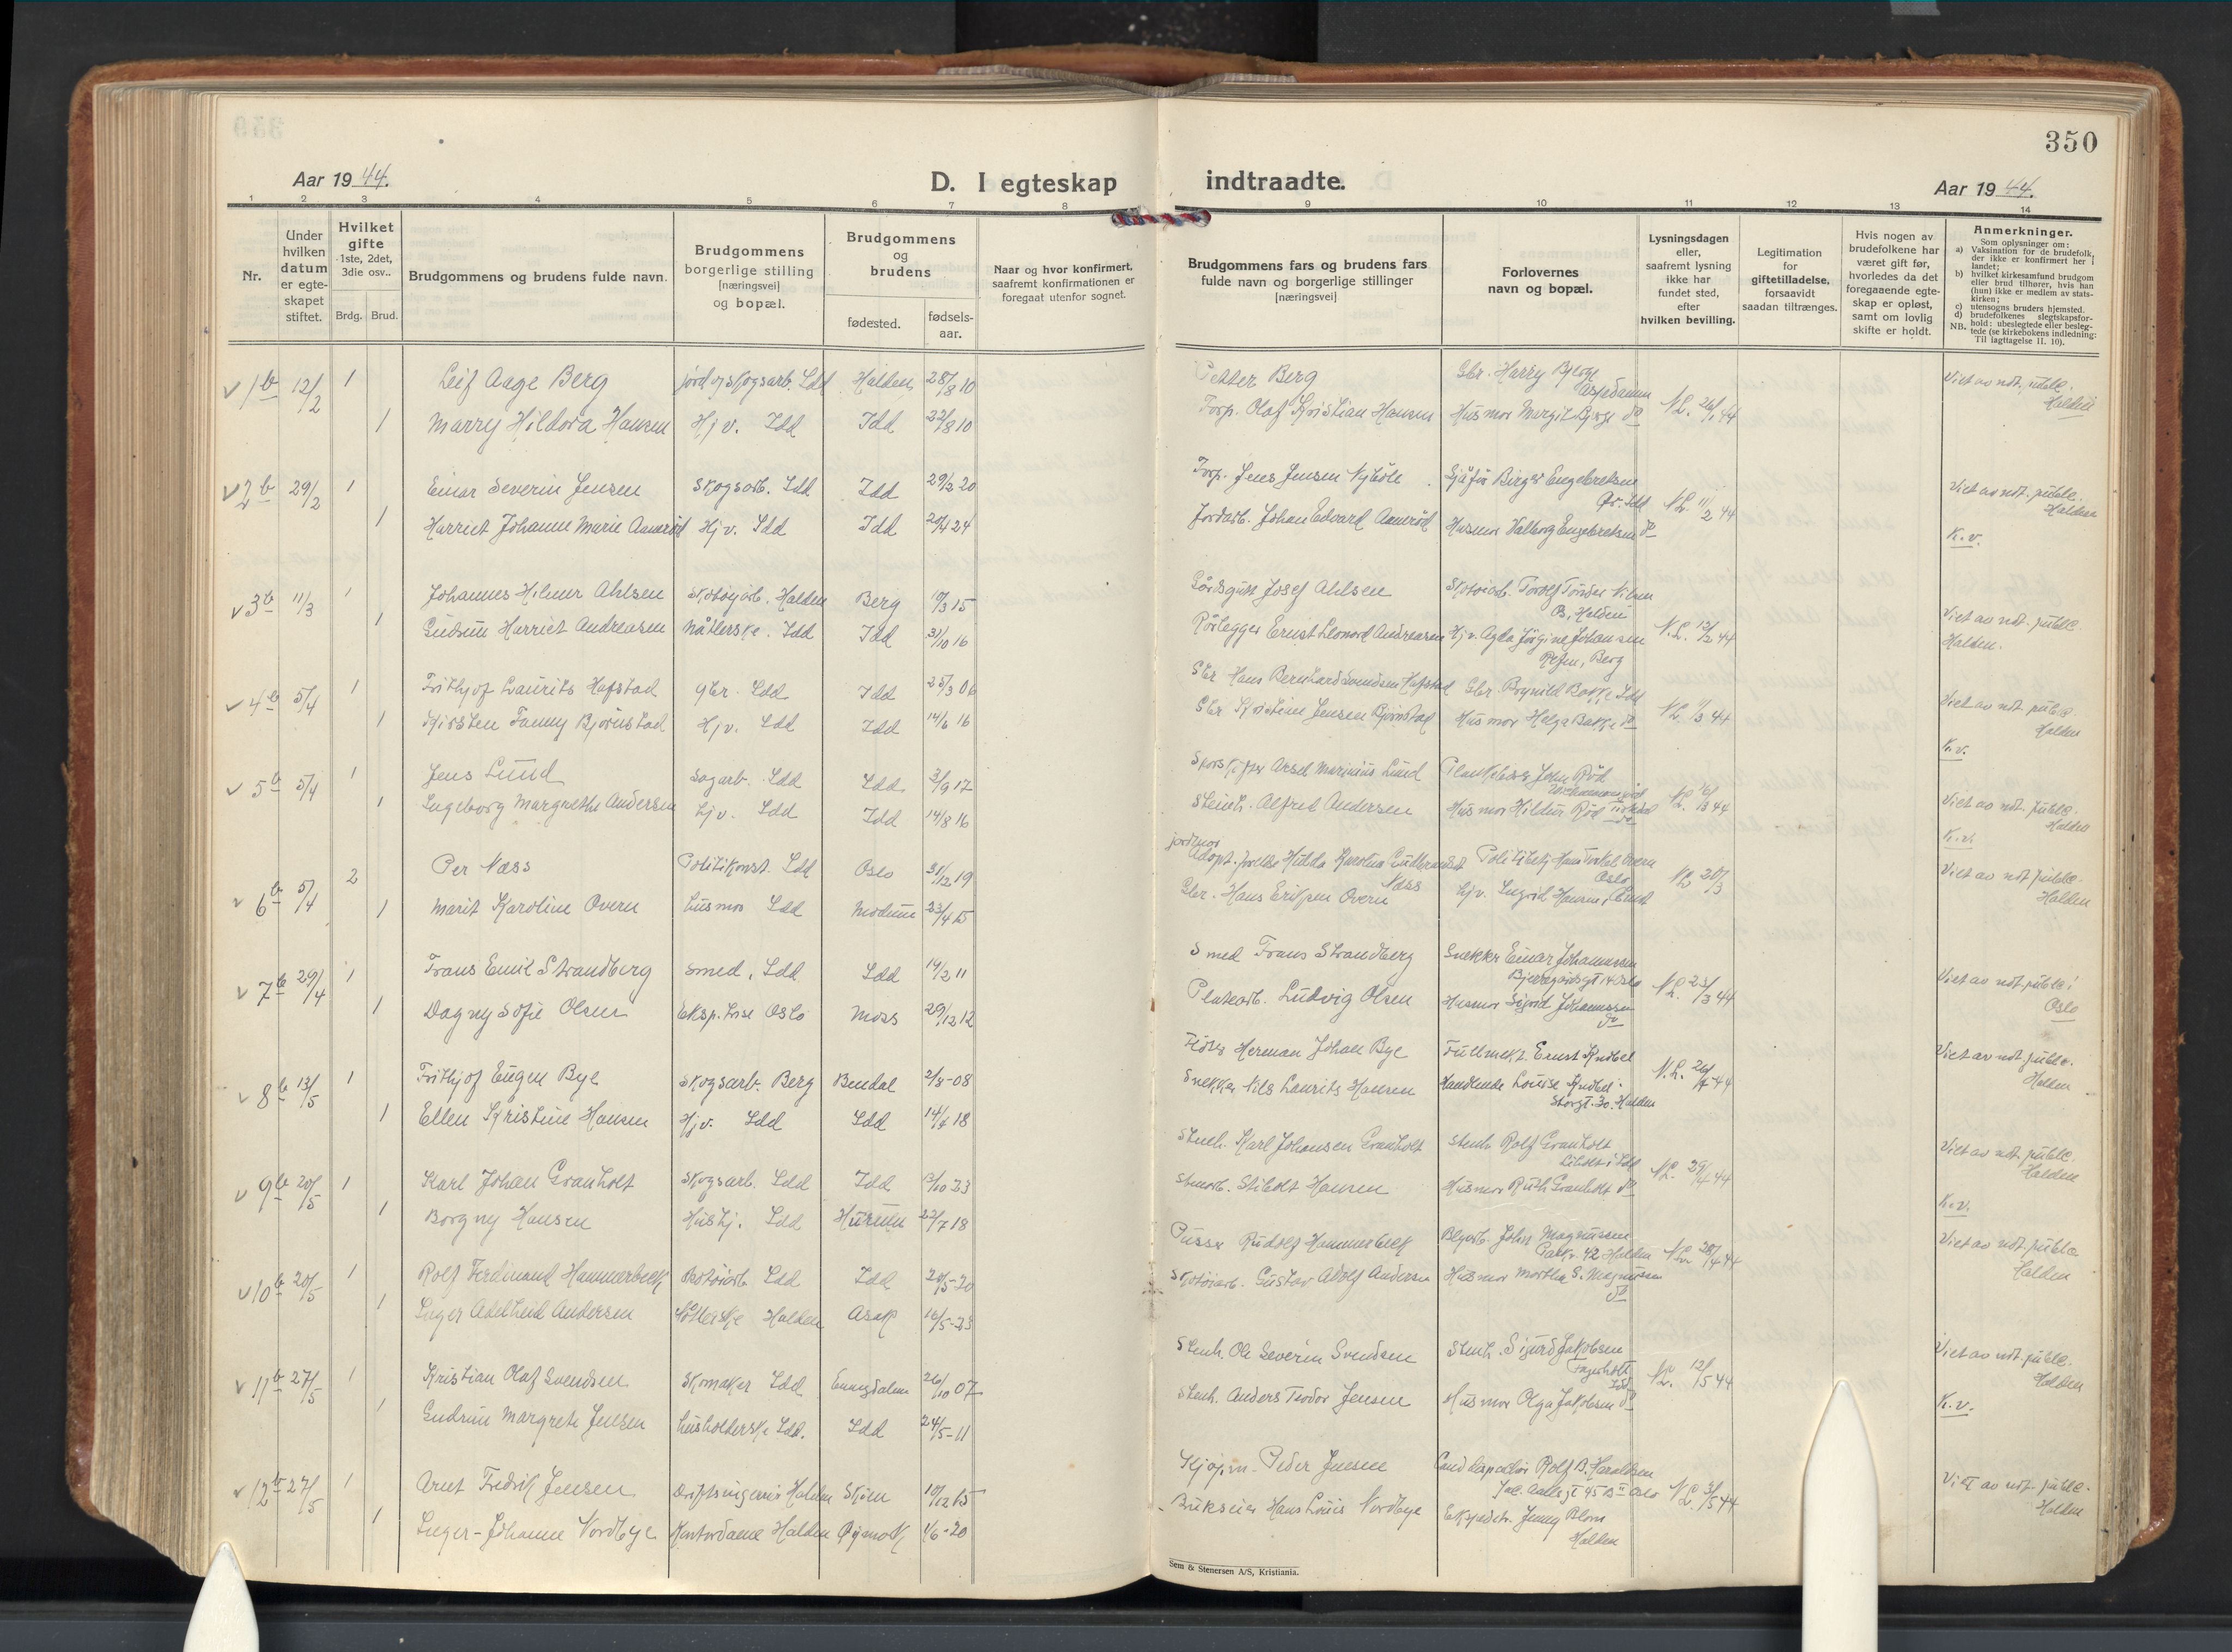 350
Aar 1944.
D. I egteskap indtraadte.
Aar 1944.
1 2 3 4 5 6 7 8 9 10 11 12 13 14
Nr.
Under hvilken datum er egte-skapet stiftet.
Hvilket gifte 1ste, 2det, 3die osv..
Brdg. Brud.
Brudgommens og brudens fulde navn.
Brudgommens borgerlige stilling [næringsvei] og bopæl.
Brudgommens og brudens
fødested.
fødsels-aar.
Naar og hvor konfirmert, saafremt konfirmationen er foregaat utenfor sognet.
Brudgommens fars og brudens fars fulde navn og borgerlige stillinger [næringsvei]
Forlovernes navn og bopæl.
Lysningsdagen eller, saafremt lysning ikke har fundet sted, efter hvilken bevilling.
Legitimation for giftetilladelse, forsaavidt saadan tiltrænges.
Hvis nogen av brudefolkene har været gift før, hvorledes da det foregaaende egte-skap er opløst, samt om lovlig skifte er holdt.
Anmerkninger.
Som oplysninger om:
a) Vaksination for de brudefolk, der ikke er konfirmert her i landet;
b) hvilket kirkesamfund brudgom eller brud tilhører, hvis han (hun) ikke er medlem av stats-kirken;
c) utensogns bruders hjemsted.
d) brudefolkenes slegtskapsfor-hold: ubeslegtede eller besleg-tede (se kirkebokens indledning:
NB. Til iagttagelse II. 10).
1b 12/2 1 Leif Aage Berg jord og skogsarb. Idd Halden 28/8 10 Petter Berg Gbr. Harry Bjerge Aspedammen N.L. 26/1 44 Viet av not. publ. Halden
1 Marry Hildora Hansen Hjv. Idd Idd 22/8 10 Torp. Olaf Kristian Hansen Husmor Margit Bjerge do
2b 29/2 1 Einar Severin Jensen Skogsarb. Idd Idd 29/2 20 Torp. Jens Jensen Sjåfør Birger Engebretsen Idd N.L. 11/2 44 Viet av not. publ. Halden
1 Harriet Johanne Marie Aamerød Hjv. Idd Idd 20/4 24 Jordarb. Johan Edvard Aamerød Husmor Valborg Engebretsen do K.v.
3b 11/3 1 Johannes Hilmer Ahlsen Skotøiarb. Halden Berg 10/3 15 Gårdsgutt Josef Ahlsen Skotøiarb. Torolf Halden N.L. 12/2 44 Viet av not. publ. Halden.
1 Gudrun Harriet Andreasen Nåtlerske. Idd Idd 31/10 16 Rørlegger Ernst Leonard Andreasen Hjv. Agda Jørgine Johansen Berg
4b 5/4 1 Frithjof Laurits Hafstad gbr. Idd Idd 25/3 06 Gbr Hans Bernhard Svendsen Hafstad Gbr. Brynild Bakke Idd N.L. 1/3 44 Viet av not. publ. Halden
1 Kirsten Fanny Bjørnstad Hjv. Idd Idd 14/6 16 Gbr Kristian Jensen Bjørnstad Husmor Helga Bakke do K.v.
5b 5/4 1 Jens Lund Sagarb. Idd Idd 3/9 17 Axsel Marinius Lund John Rød N.L. 16/3 44 Viet av not. publ. Halden
1 Ingeborg Margrethe Andersen Hjv. Idd Idd 14/8 16 Steinh. Alfred Andersen Husmor Hildur Rød do K.v.
6b 5/4 2 Per Næss Politikonst. Idd Oslo 31/12 19 jordmor Adopt. Hilda Karoline Næss Politibetj. Overn Oslo N.L. 20/3 Viet av not publ. Halden
1 Marit Karoline Overn husmor Idd Modum 23/4 15 Gbr. Hans Eriksen Overn Hjv. Ingrid Hansen
7b 29/4 1 Frans Emil Strandberg smed, Idd Idd 14/2 11 Smed Frans Strandberg Snekker Einar Johannessen Bjerregårdsgt 14 Oslo N.L. 23/3 44 Viet av not. publ. i Oslo
1 Dagny Sofie Olsen Eksp.trise Oslo Moss 29/12 12 Platearb. Ludvig Olsen Husmor Sigrid Johannessen do
8b 13/5 1 Frithjof Eugen Bye skogsarb. Berg Bindal 2/8-08 Fløter Herman Johan Bye Fullmekt. Ernst Knobel N.L. 26/4-44 Viet av not. publ. Halden
1 Ellen Kristine Hansen Hjv. Idd Idd 14/4 18 Snekker Nils Laurits Hansen Handlende Louise Knobel Storgt. 30. Halden
9b 20/5 1 Karl Johan Granholt Skogsarb. Idd Idd 10 23 Stenh. Karl Johansen Granholt Stenh. Rolf Granholt i Idd N.L. 29/4 44 Viet av not. publ. Halden
1 Borgny Hansen Hushj. Idd Hurum 22/7 18 Stenarb. Stiholt Hansen Husmor Ruth Granholt do K.v.
10b 20/5 1 Rolf Ferdinand Hammerbeck Skotøiarb. Idd Idd 20/5-20 Pusser Rudolf Hammerbeck John Magnussen 42 Halden N.L. 28/4 44 Viet av not. publ. Halden
1 Inger Adelheid Andersen Nåtlerske Halden Asak 16/5-23 Skotøiarb. Gustav Adolf Andersen Husmor Martha S. Magnussen do
11b 27/5 1 Kristian Olaf Svendsen Skomaker Idd Enningdalen 26/10 07 Stenh. Ole Severin Svendsen Stenh. Sigurd Jakobsen Fagerholt Idd N.L. 12/5 44 Viet av not. publ. Halden
1 Gudrun Margrete Jensen husholderske Idd. Idd 24/5-11 Stenh. Anders Teodor Jensen Husmor Olga Jakobsen do K.v.
12b 27/5 1 Arnt Fredrik Jensen Driftsingeniør Halden Skien 10/12 15 Kjøpm. Peder Jensen Rolf B. Haraldsen Oslo N.L. 3/5 44 Viet av not. publ. Halden
1 Inger-Johanne Nordbye Kontordame Halden Øymark 1/6-20 Brukseier Hans Louis Nordbye Ekspeditr. Jenny Blom Halden
Sem & Stenersen A/S, Kristiania.